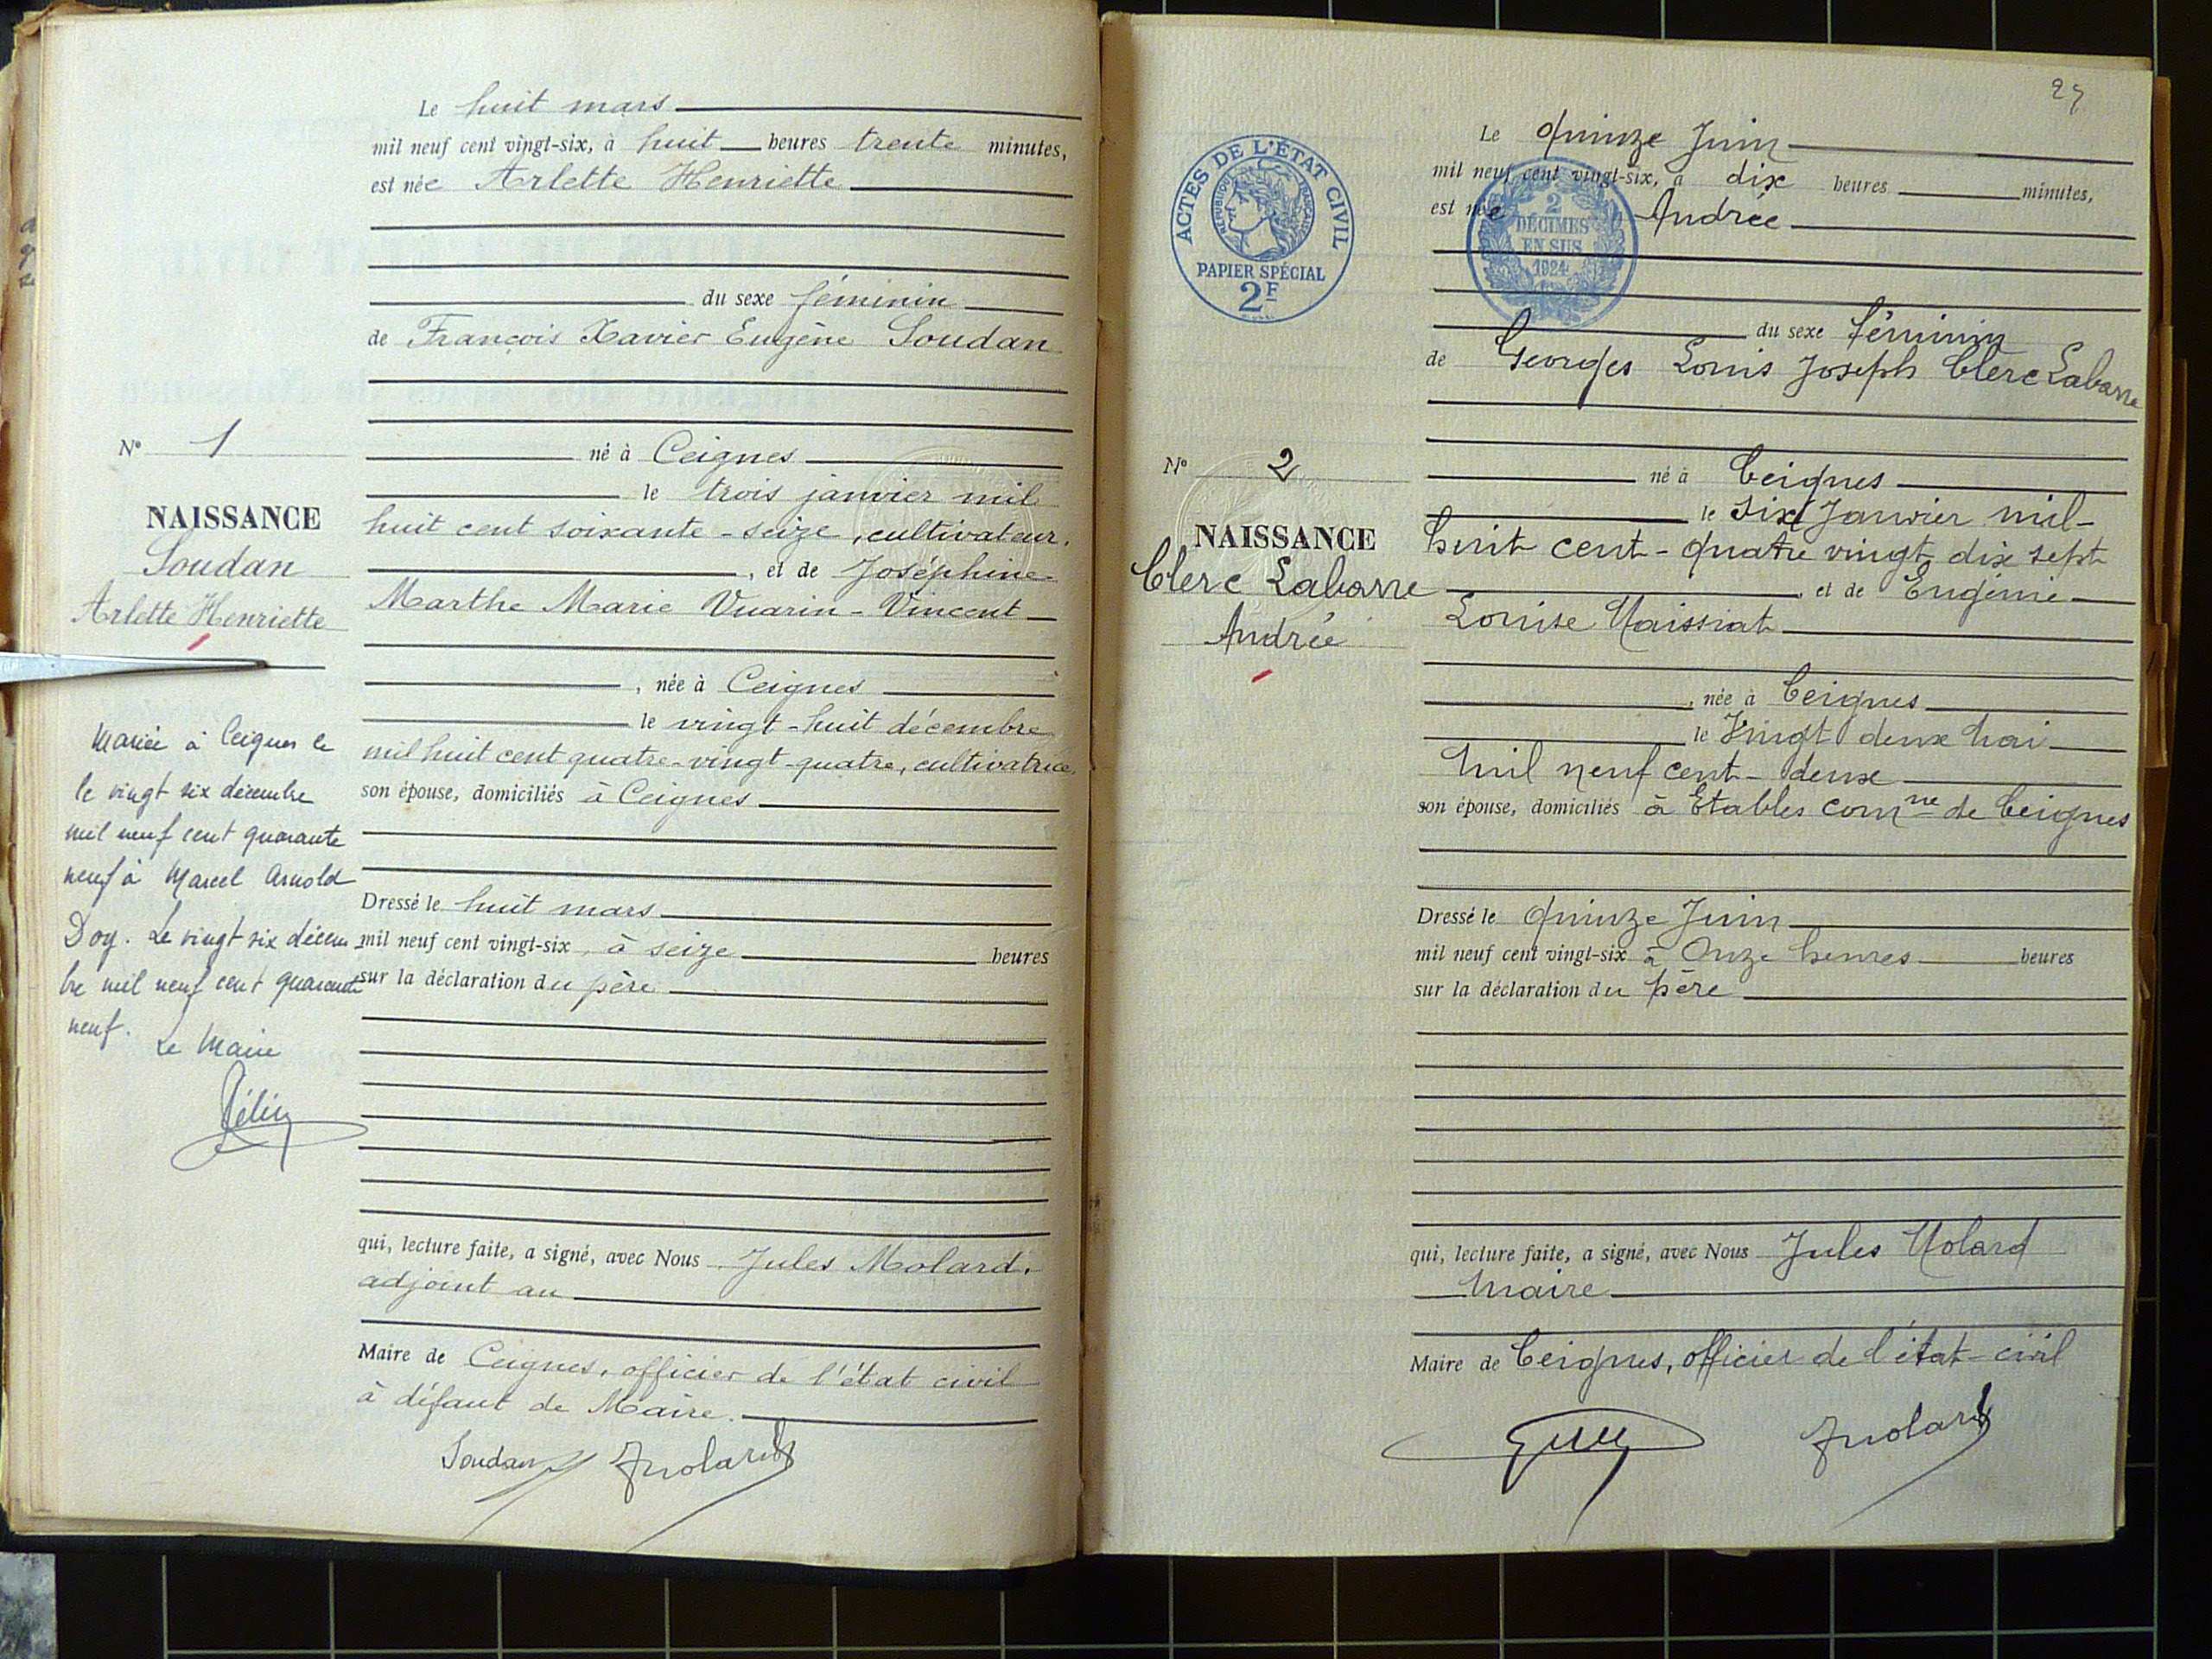 Le huit mars
mil neuf cent vingt-six, à huit heures trente minutes,
est née Arlette Henriette
du sexe féminin
de François Xavier Eugène Soudan
né à Ceignes
le trois janvier mil
huit cent soixante-seize, cultivateur.
, et de Joséphine
Marthe Marie Vuarin-Vincent
, née à Ceignes
le vingt-huit décembre
mil huit cent quatre-vingt-quatre, cultivatrice,
son épouse, domiciliés à Ceignes
Dressé le huit mars
mil neuf cent vingt-six, à seize heures
sur la déclaration du père
qui, lecture faite, a signé, avec Nous Jules Molard,
adjoint au
Maire de Ceignes, officier de l'état civil
à défaut de Maire.
Soudan Jmolard
N° 1
NAISSANCE
Soudan
Arlette Henriette
Mariée à Ceignes le
le vingt six décembre
mil neuf cent quarante
neuf à Marcel Arnold
Doy. Le vingt six décem
bre mil neuf cent quarante
neuf.
Le Maire
27
ACTES DE L'ÉTAT CIVIL
RÉPUBLIQUE FRANÇAISE
PAPIER SPÉCIAL
2F
2
DÉCIMES
EN SUS
1924
Le Quinze Juin
mil neuf cent vingt-six, à dix heures minutes,
est née Andrée
du sexe féminin
de Georges Louis Joseph Clerc Labarre
né à Ceignes
le Six Janvier mil-
huit cent-quatre vingt dix sept
, et de Eugénie
Louise Maissiat
, née à Ceignes
le Vingt deux Mai
Mil neuf cent-deux
son épouse, domiciliés à Etables comne de Ceignes
Dressé le Quinze Juin
mil neuf cent vingt-six à Onze heures heures
sur la déclaration du père
qui, lecture faite, a signé, avec Nous Jules Molard
Maire
Maire de Ceignes, officier de l'état-civil
Jmolard
N° 2
NAISSANCE
Clerc Labarre
Andrée